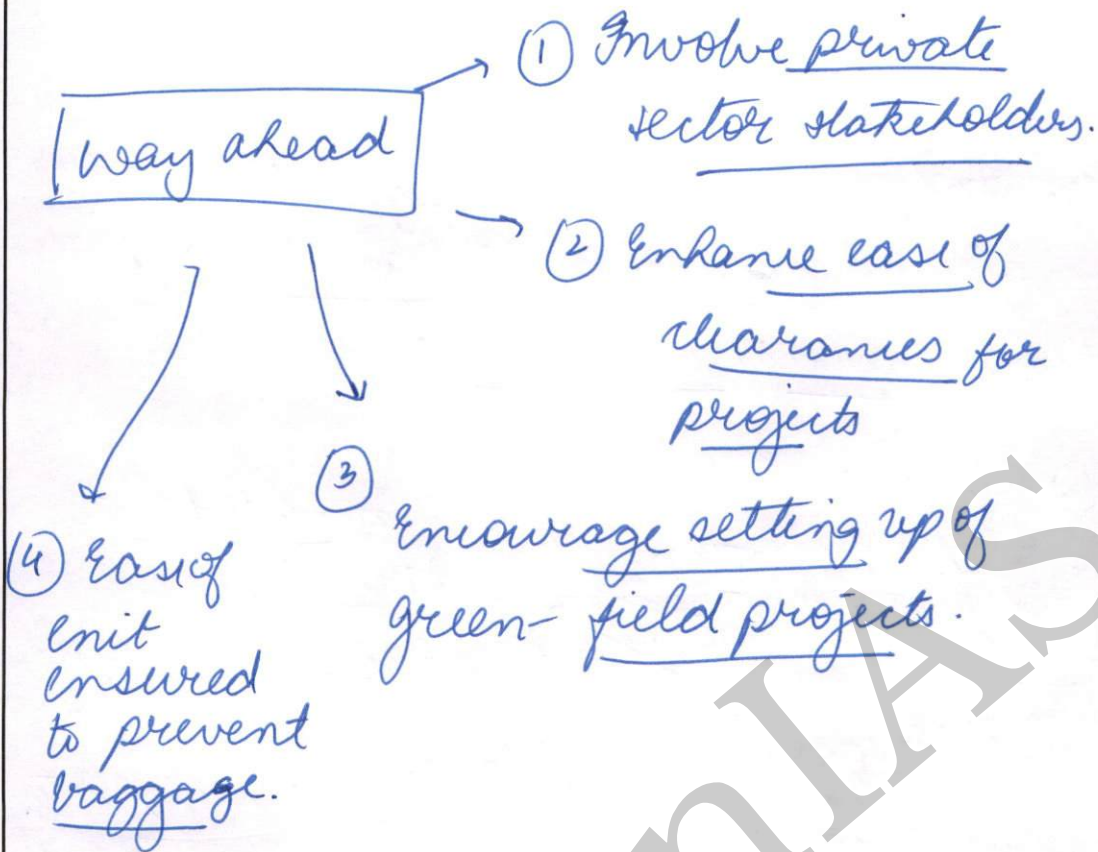 way ahead
① Involve private
sector stakeholders.
② Enhance ease of
clearances for
projects
③
Encourage setting up of
green-field projects.
④ Ease of
exit
ensured
to prevent
baggage.
nIAS